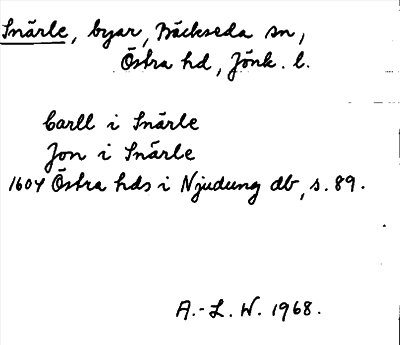 Snärle, byar, Bäckseda sn,
Östra hd, Jönk. l.
Carll i Snärle
Jon i Snärle
1604 Östra hds i Njudung db, s. 89.
A.-L. W. 1968.